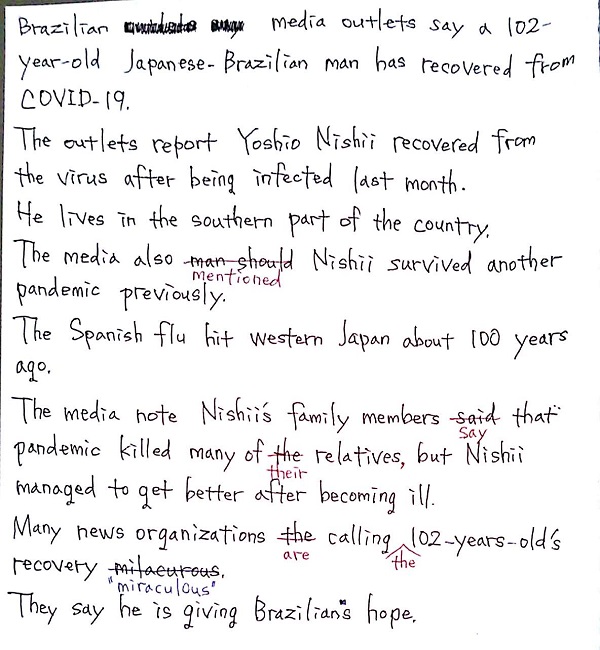 Brazilian media outlets say a 102-
year-old Japanese-Brazilian man has recovered from
COVID-19.
The outlets report Yoshio Nishii recovered from
the virus after being infected last month.
He lives in the southern part of the country.
The media also man should Nishii survived another
mentioned
pandemic previously.
The Spanish flu hit western Japan about 100 years
ago.
The media note Nishii's family members said that
say
pandemic killed many of the relatives, but Nishii
their
managed to get better after becoming ill.
Many news organizations the calling 102-years-old's
are the
recovery milacurous.
"miraculous"
They say he is giving Brazilians hope.